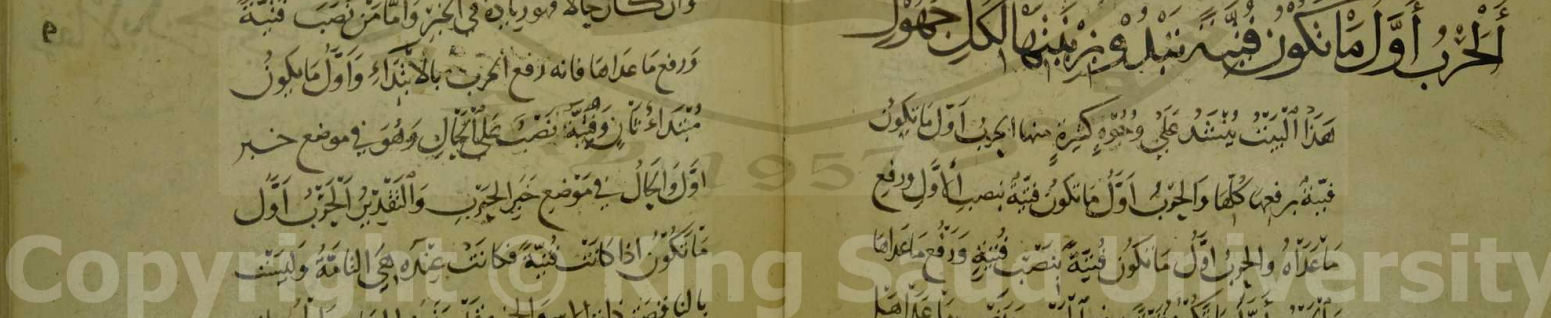 أَلْحَرْبُ أَوَّلَ مَا تَكُونُ فُتَيَّةً تَبْدُو بِزِينَتِهَا لِكُلِّ جَهُولِ
هَذَا الْبَيْتُ يُنْشَدُ عَلَى وُجُوهٍ كَثِيرَةٍ منها الحربُ أَوَّلُ مَا تَكُونُ
فتيّةٌ برفعها كُلِّهَا وَالحَرْبُ أَوَّلَ مَا تَكُونُ فتيّةٌ بنصب أَوَّل ورفع
مَا عَدَاهُ والحربُ اوَّلُ مَا تَكُونُ فُتَيَّةً بِنَصْبِ فُتَيَّةٍ وَرَفْعِ مَا عَدَاهَا
وان كان حالا فهو زيادة في الخبر وَأَمَّا مَنْ نَصَبَ فُتَيَّةً
وَرفع ما عداها فانه رفع الحرب بالابْتِدَاءِ وَأَوَّلُ مَا يكونُ
مُبْتَدَاءٌ ثَانٍ وَفُتَيَّةً نَصْبٌ عَلَى الْحَالِ وَهُوَ في موضع خبر
اوَّل وَالحَالُ فِي مَوْضِع خَبَرِ الحَرْبِ وَالتَّقْدِيْرُ اَلْحَرْبُ اَوَّل
مَا تَكُوْنُ اذا كَانَتْ فُتَيَّةً فكَانَتْ عِنْدَه هِيَ التَامَّةُ وَلَيْسَتْ
Copyright © King Saud University
1957